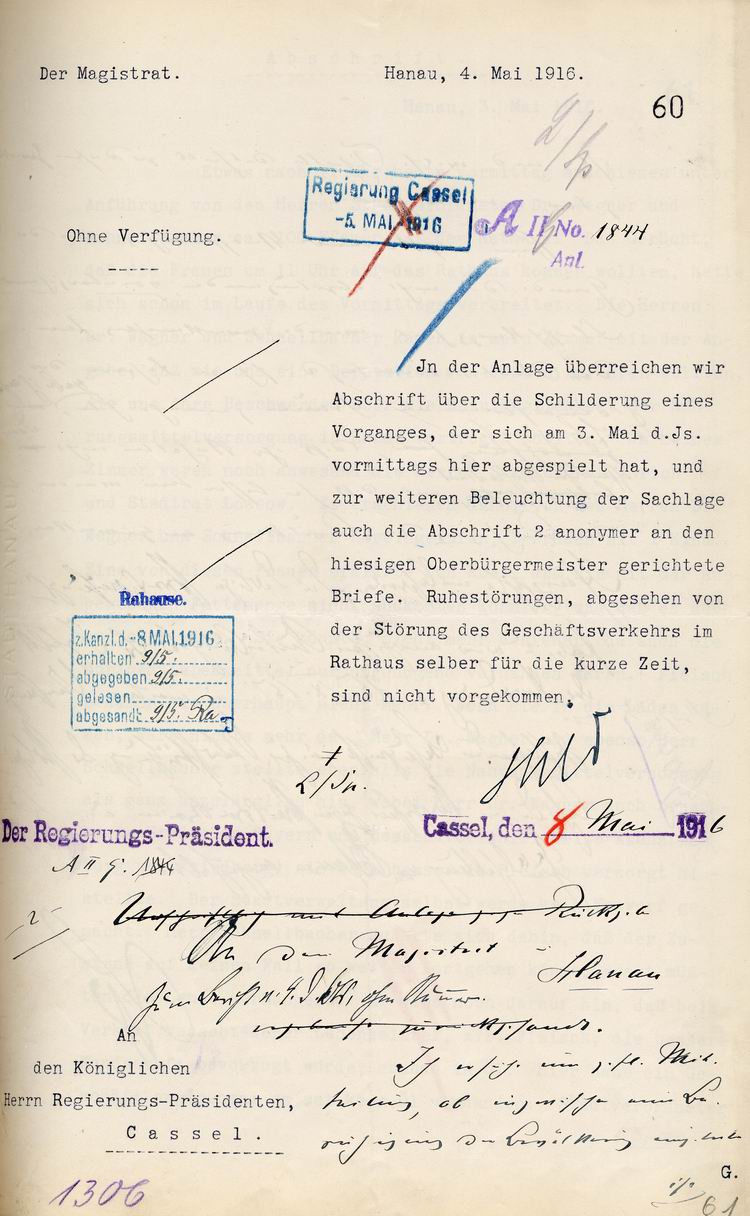 Der Magistrat.
Hanau, 4. Mai 1916.
60
Regierung Cassel
-5. MAI 1916
A II No. 1844
Anl.
Ohne Verfügung.
Jn der Anlage überreichen wir
Abschrift über die Schilderung eines
Vorganges, der sich am 3. Mai d.Js.
vormittags hier abgespielt hat, und
zur weiteren Beleuchtung der Sachlage
auch die Abschrift 2 anonymer an den
hiesigen Oberbürgermeister gerichtete
Briefe. Ruhestörungen, abgesehen von
der Störung des Geschäftsverkehrs im
Rathaus selber für die kurze Zeit,
sind nicht vorgekommen.
Rahause.
z.Kanzl.d. -8 MAI.1916
erhalten 9/5.
abgegeben 9/5.
gelesen
abgesandt 9/5. Ra
Der Regierungs-Präsident.
Cassel, den 8 Mai 1916
A II 1844
An den Magistrat
Hanau
An
den Königlichen
Herrn Regierungs-Präsidenten,
Cassel.
Ich ersuche um gefl. Mit-
teilung, ob inzwischen eine Be-
ruhigung der Bevölkerung
G.
1306
61